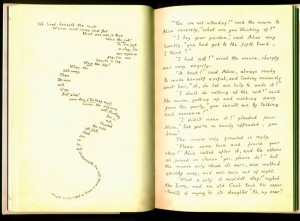 We lived beneath the mat
Warm and snug and fat
But one woe, & that
Was the cat!
To our joys
a clog, In
our eyes a
fog, On our
hearts a log
Was the dog!
When the
cat's away,
Then
the mice
will
play,
But, alas!
one day, (So they say)
"You are not attending!" said the mouse to
Alice severely, "what are you thinking of?"
"I beg your pardon," said Alice very
humbly, "you had got to the fifth bend,
I think?"
"I had not!" cried the mouse, sharply
and very angrily.
"A knot!" said Alice, always ready
to make herself useful, and looking anxiously
about her, "oh, do let me help to undo it!"
"I shall do nothing of the sort!" said
the mouse, getting up and walking away
from the party, "you insult me by talking
such nonsense!"
"I didn't mean it!" pleaded poor
Alice, "but you're so easily offended, you
know."
The mouse only growled in reply.
"Please come back and finish your
story!" Alice called after it, and the others
all joined in chorus "yes, please do!" but
the mouse only shook its ears, and walked
quickly away, and was soon out of sight.
"What a pity it wouldn't stay!" sighed
the Lory, and an old Crab took the oppor-
tunity of saying to its daughter "Ah, my dear!